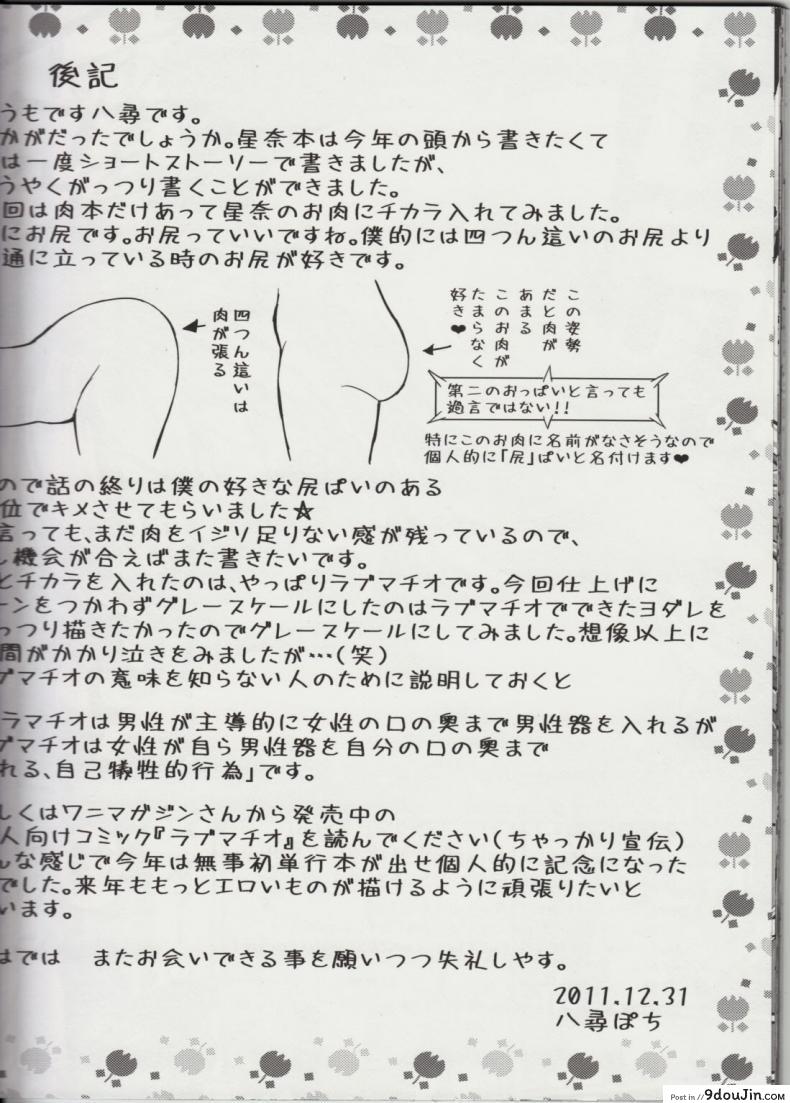 後記
うもです八尋です。
かがだったでしょうか。星奈本は今年の頭から書きたくて
は一度ショートストーリーで書きましたが、
うやくがっつり書くことができました。
回は肉本だけあって星奈のお肉にチカラ入れてみました。
にお尻です。お尻っていいですね。僕的には四つん這いのお尻より
通に立っている時のお尻が好きです。
四つん這いは
肉が張る
この姿勢
だとお肉が
あまる
このお肉が
たまらなく
好き♥
第二のおっぱいと言っても
過言ではない!!
特にこのお肉に名前がなさそうなので
個人的に「尻」ぱいと名付けます♥
ので話の終りは僕の好きな尻ぱいのある
位でキメさせてもらいました☆
言っても、まだ肉をイジリ足りない感が残っているので、
し機会が合えばまた書きたいです。
とチカラを入れたのは、やっぱりラブマチオです。今回仕上げに
ーンをつかわずグレースケールにしたのはラブマチオでできたヨダレを
っつり描きたかったのでグレースケールにしてみました。想像以上に
間がかかり泣きをみましたが…(笑)
ブマチオの意味を知らない人のために説明しておくと
ラマチオは男性が主導的に女性の口の奥まで男性器を入れるが
ブマチオは女性が自ら男性器を自分の口の奥まで
れる、自己犠牲的行為」です。
しくはワニマガジンさんから発売中の
人向けコミック『ラブマチオ』を読んでください(ちゃっかり宣伝)
んな感じで今年は無事初単行本が出せ個人的に記念になった
でした。来年ももっとエロいものが描けるように頑張りたいと
います。
はでは　またお会いできる事を願いつつ失礼しやす。
2011.12.31
八尋ぽち
Post in // 9douJin.com